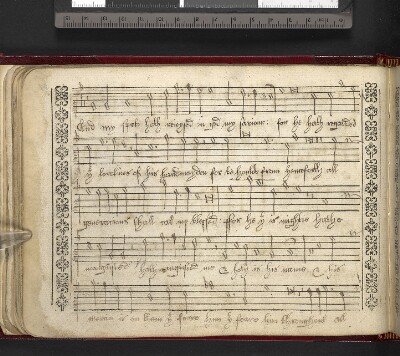 And my sprit hath reioysed in god my saviour. for he hath regarded
y lowlines of his handmayden for be holde from hencforth all
generations shall call my blessed. ffor he y is mightie hathe
magnified me & holy is his name & his
mercie is on them y feare hym y feare him throughout all